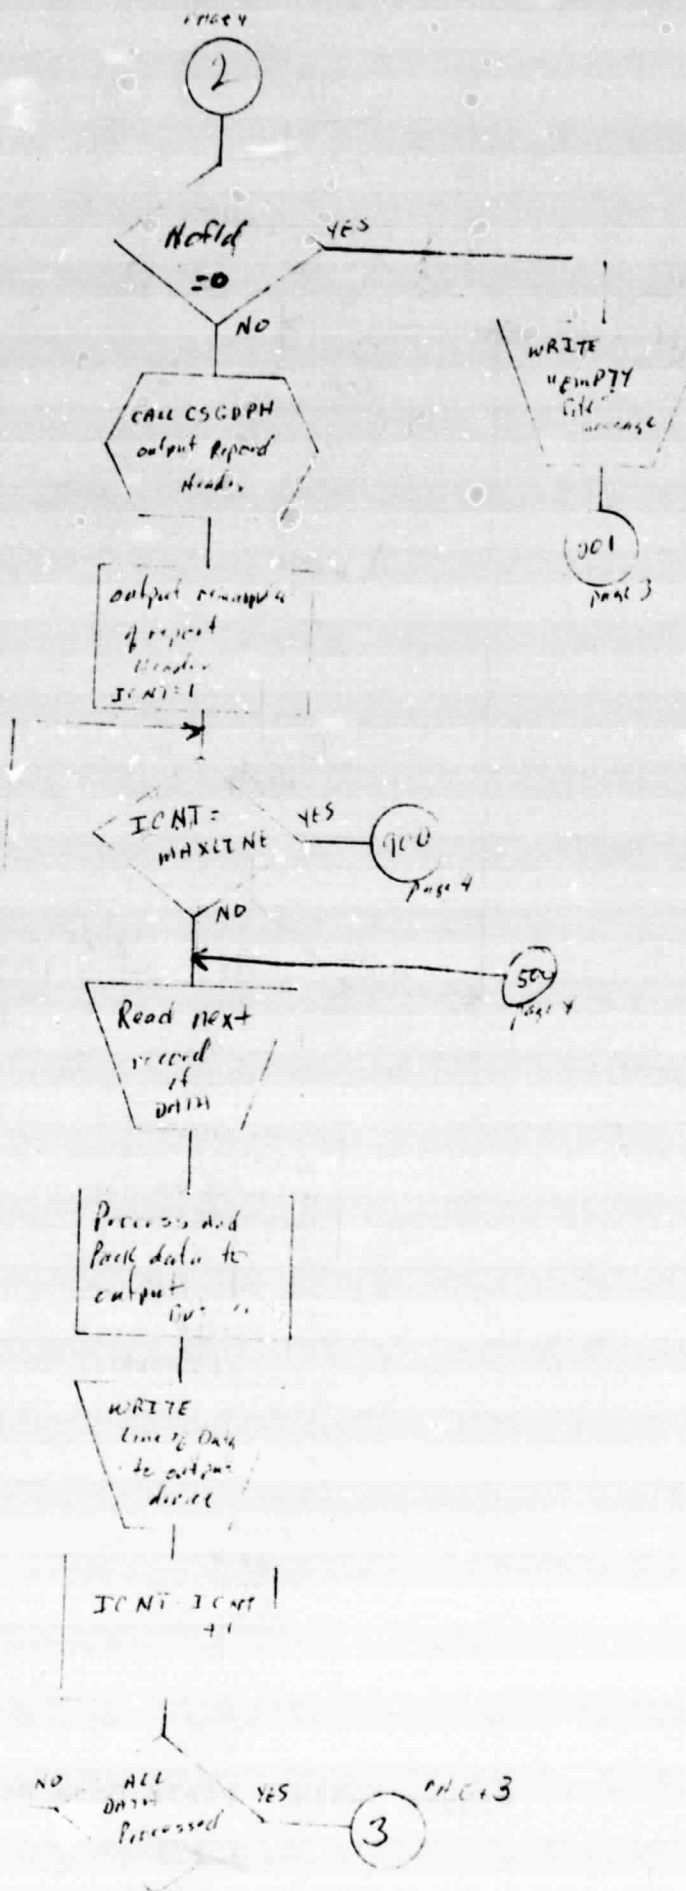 2
Nofld
=0
YES
NO
WRITE
"EMPTY
file"
message
CALL CSGDPH
output Report
Header
001
page 3
output
of report
Header
ICNT=1
ICNT=
MAXLINE
YES
900
page 4
NO
500
page 4
Read next
record
of
DATA
Process and
Pack data to
output
WRITE
Line of Data
to output
device
ICNT=ICNT
+1
NO
ALL
DATA
Processed
YES
3
PAGE 3